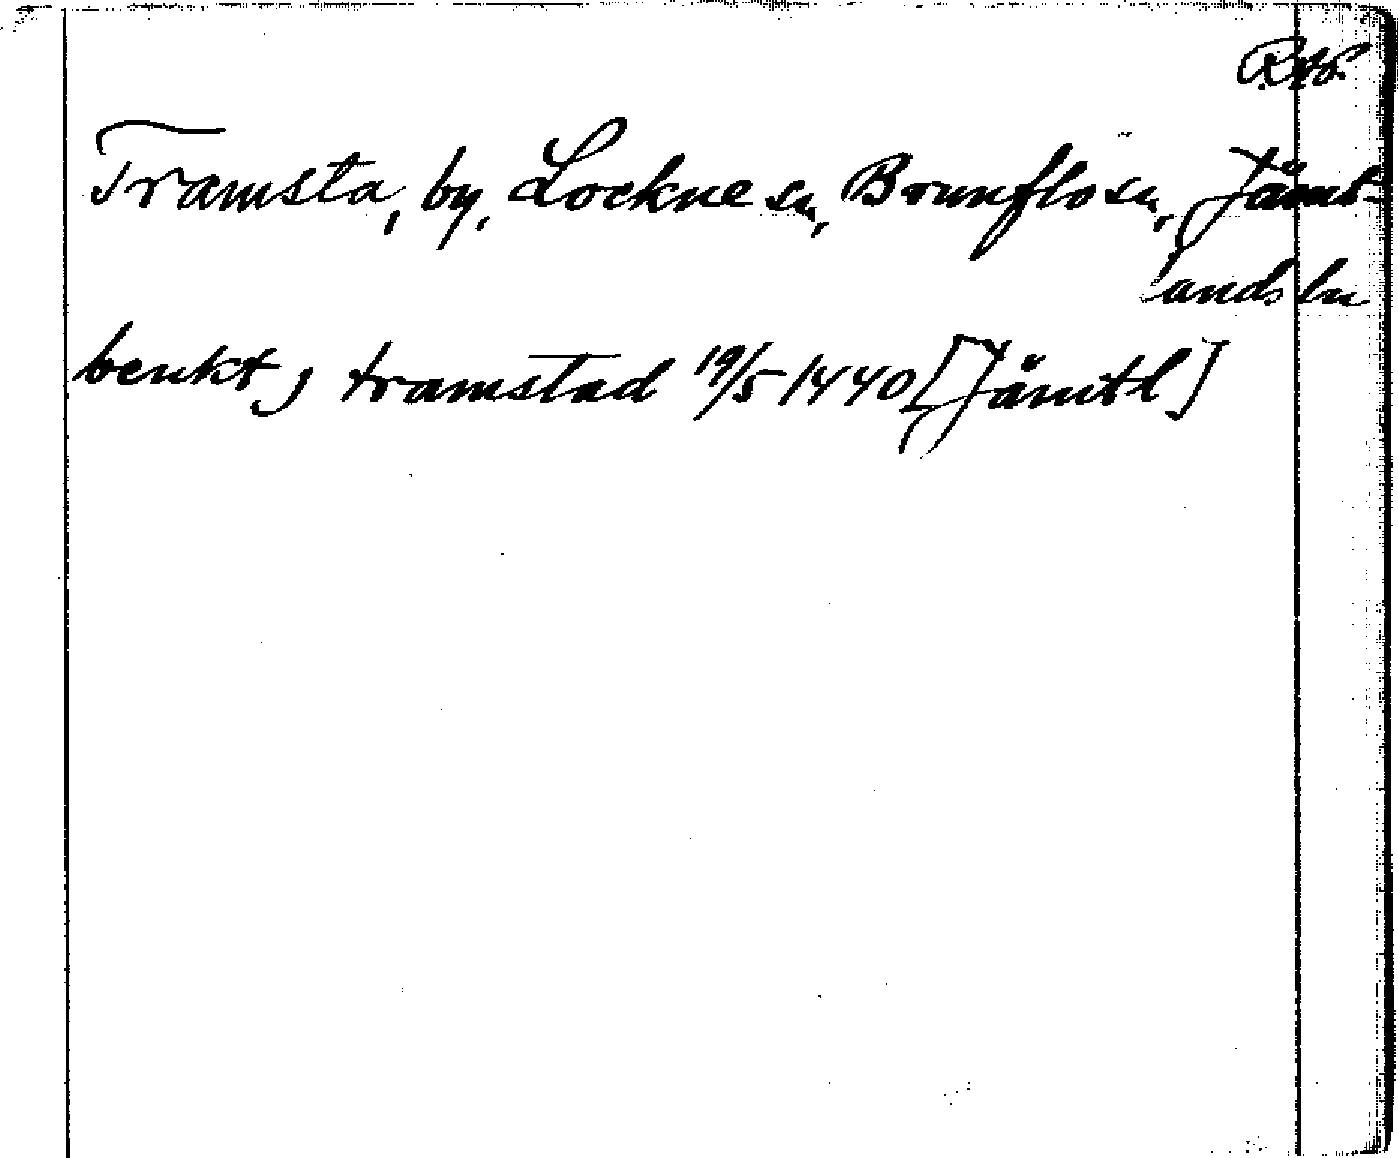 Tramsta, by, Lockne sn, Brunflo sn, Jämt-
lands ln
benkt j tramstad 19/5 1440 [Jämtl]